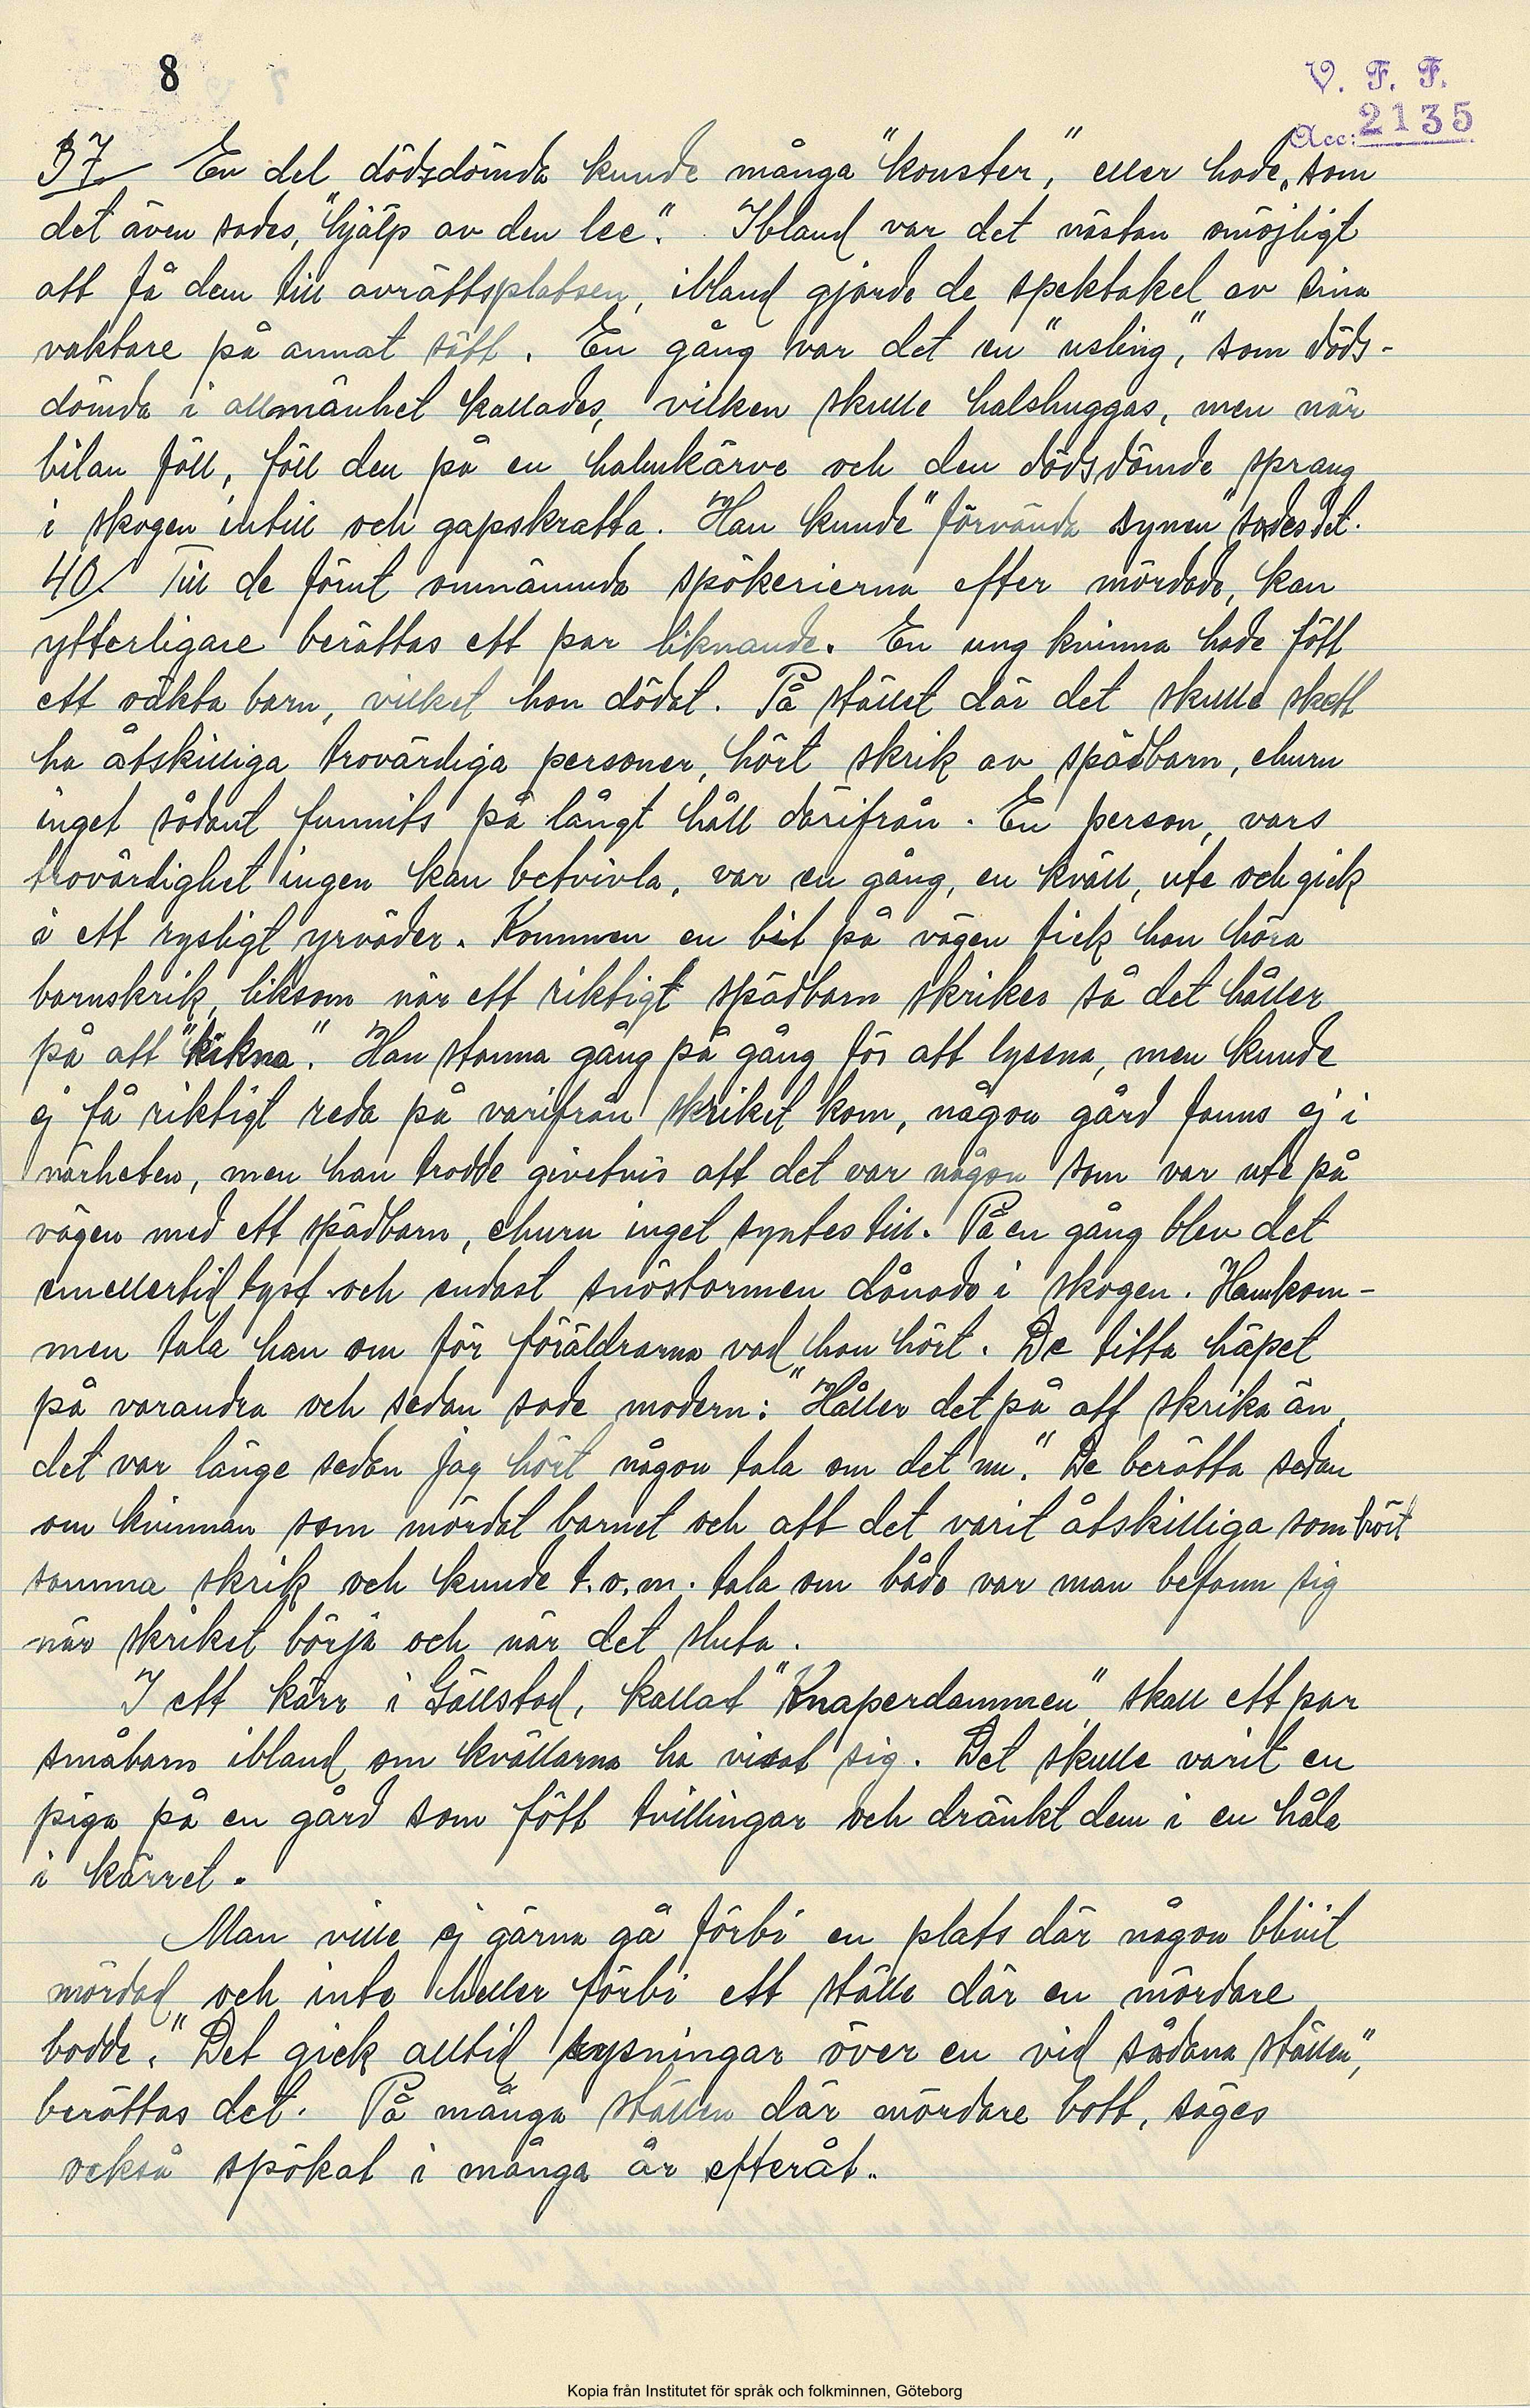 8
V. F. F.
Acc: 2135
37. En del dödsdömda kunde många "konster", eller hade, som
det även sades, "hjälp av den lee". Ibland var det nästan omöjligt
att få dem till avrättsplatsen, ibland gjorde de spektakel av sina
vaktare på annat sätt. En gång var det en "usling", som döds-
dömda i allmänhet kallades, vilken skulle halshuggas, men när
bilan föll, föll den på en halmkärve och den dödsdömde sprang
i skogen intill och gapskratta. Han kunde "förvända synen" sades det.
40. Till de förut omnämnda spökerierna efter mördade, kan
ytterligare berättas ett par liknande. En ung kvinna hade fött
ett oäkta barn, vilket hon dödat. På stället där det skulle skett
ha åtskilliga trovärdiga personer, hört skrik av spädbarn, ehuru
inget sådant funnits på långt håll därifrån. En person, vars
trovärdighet ingen kan betvivla, var en gång, en kväll, ute och gick
i ett rysligt yrväder. Kommen en bit på vägen fick han höra
barnskrik, liksom när ett riktigt spädbarn skriker så det håller
på att "kikna". Han stanna gång på gång för att lyssna, men kunde
ej få riktigt reda på varifrån skriket kom, någon gård fanns ej i
närheten, men han trodde givetvis att det var någon som var ute på
vägen med ett spädbarn, ehuru inget syntes till. På en gång blev det
emellertid tyst och endast snöstormen dånade i skogen. Hemkom-
men tala han om för föräldrarna vad han hört. De titta häpet
på varandra och sedan sade modern: "Håller det på att skrika än,
det var länge sedan jag hört någon tala om det nu." De berätta sedan
om kvinnan som mördat barnet och att det varit åtskilliga som hört
samma skrik och kunde t.o.m. tala om både var man befann sig
när skriket börja och när det sluta.
I ett kärr i Gällstad, kallat "Knaperdammen", skall ett par
småbarn ibland om kvällarna ha visat sig. Det skulle varit en
piga på en gård som fött tvillingar och dränkt dem i en håla
i kärret.
Man ville ej gärna gå förbi en plats där någon blivit
mördad och inte heller förbi ett ställe där en mördare
bodde. "Det gick alltid rysningar över en vid sådana ställen",
berättas det. På många ställen där mördare bott, säges
också spökat i många år efteråt.
Kopia från Institutet för språk och folkminnen, Göteborg